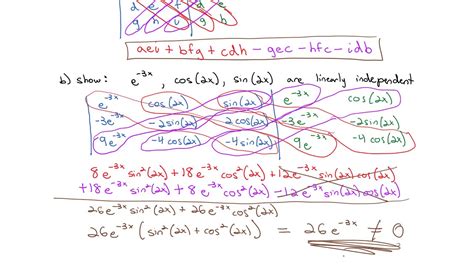 d e d e
g h g h
aei + bfg + cdh - gec - hfc - idb
b) show: e^-3x , cos(2x), sin(2x) are linearly independent
e^-3x cos(2x) sin(2x) e^-3x cos(2x)
-3e^-3x -2sin(2x) 2cos(2x) -3e^-3x -2sin(2x)
9e^-3x -4cos(2x) -4sin(2x) 9e^-3x -4cos(2x)
8e^-3x sin²(2x) + 18e^-3x cos²(2x) + 12e^-3x sin(2x)cos(2x)
+18e^-3x sin²(2x) + 8e^-3x cos²(2x) - 12e^-3x sin(2x)cos(2x)
26e^-3x sin²(2x) + 26e^-3x cos²(2x)
26e^-3x (sin²(2x) + cos²(2x)) = 26e^-3x ≠ 0